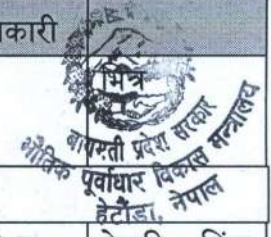 कारी
भित्र
बागमती प्रदेश सरकार
भौतिक पूर्वाधार विकास मन्त्रालय
हेटौंडा, नेपाल